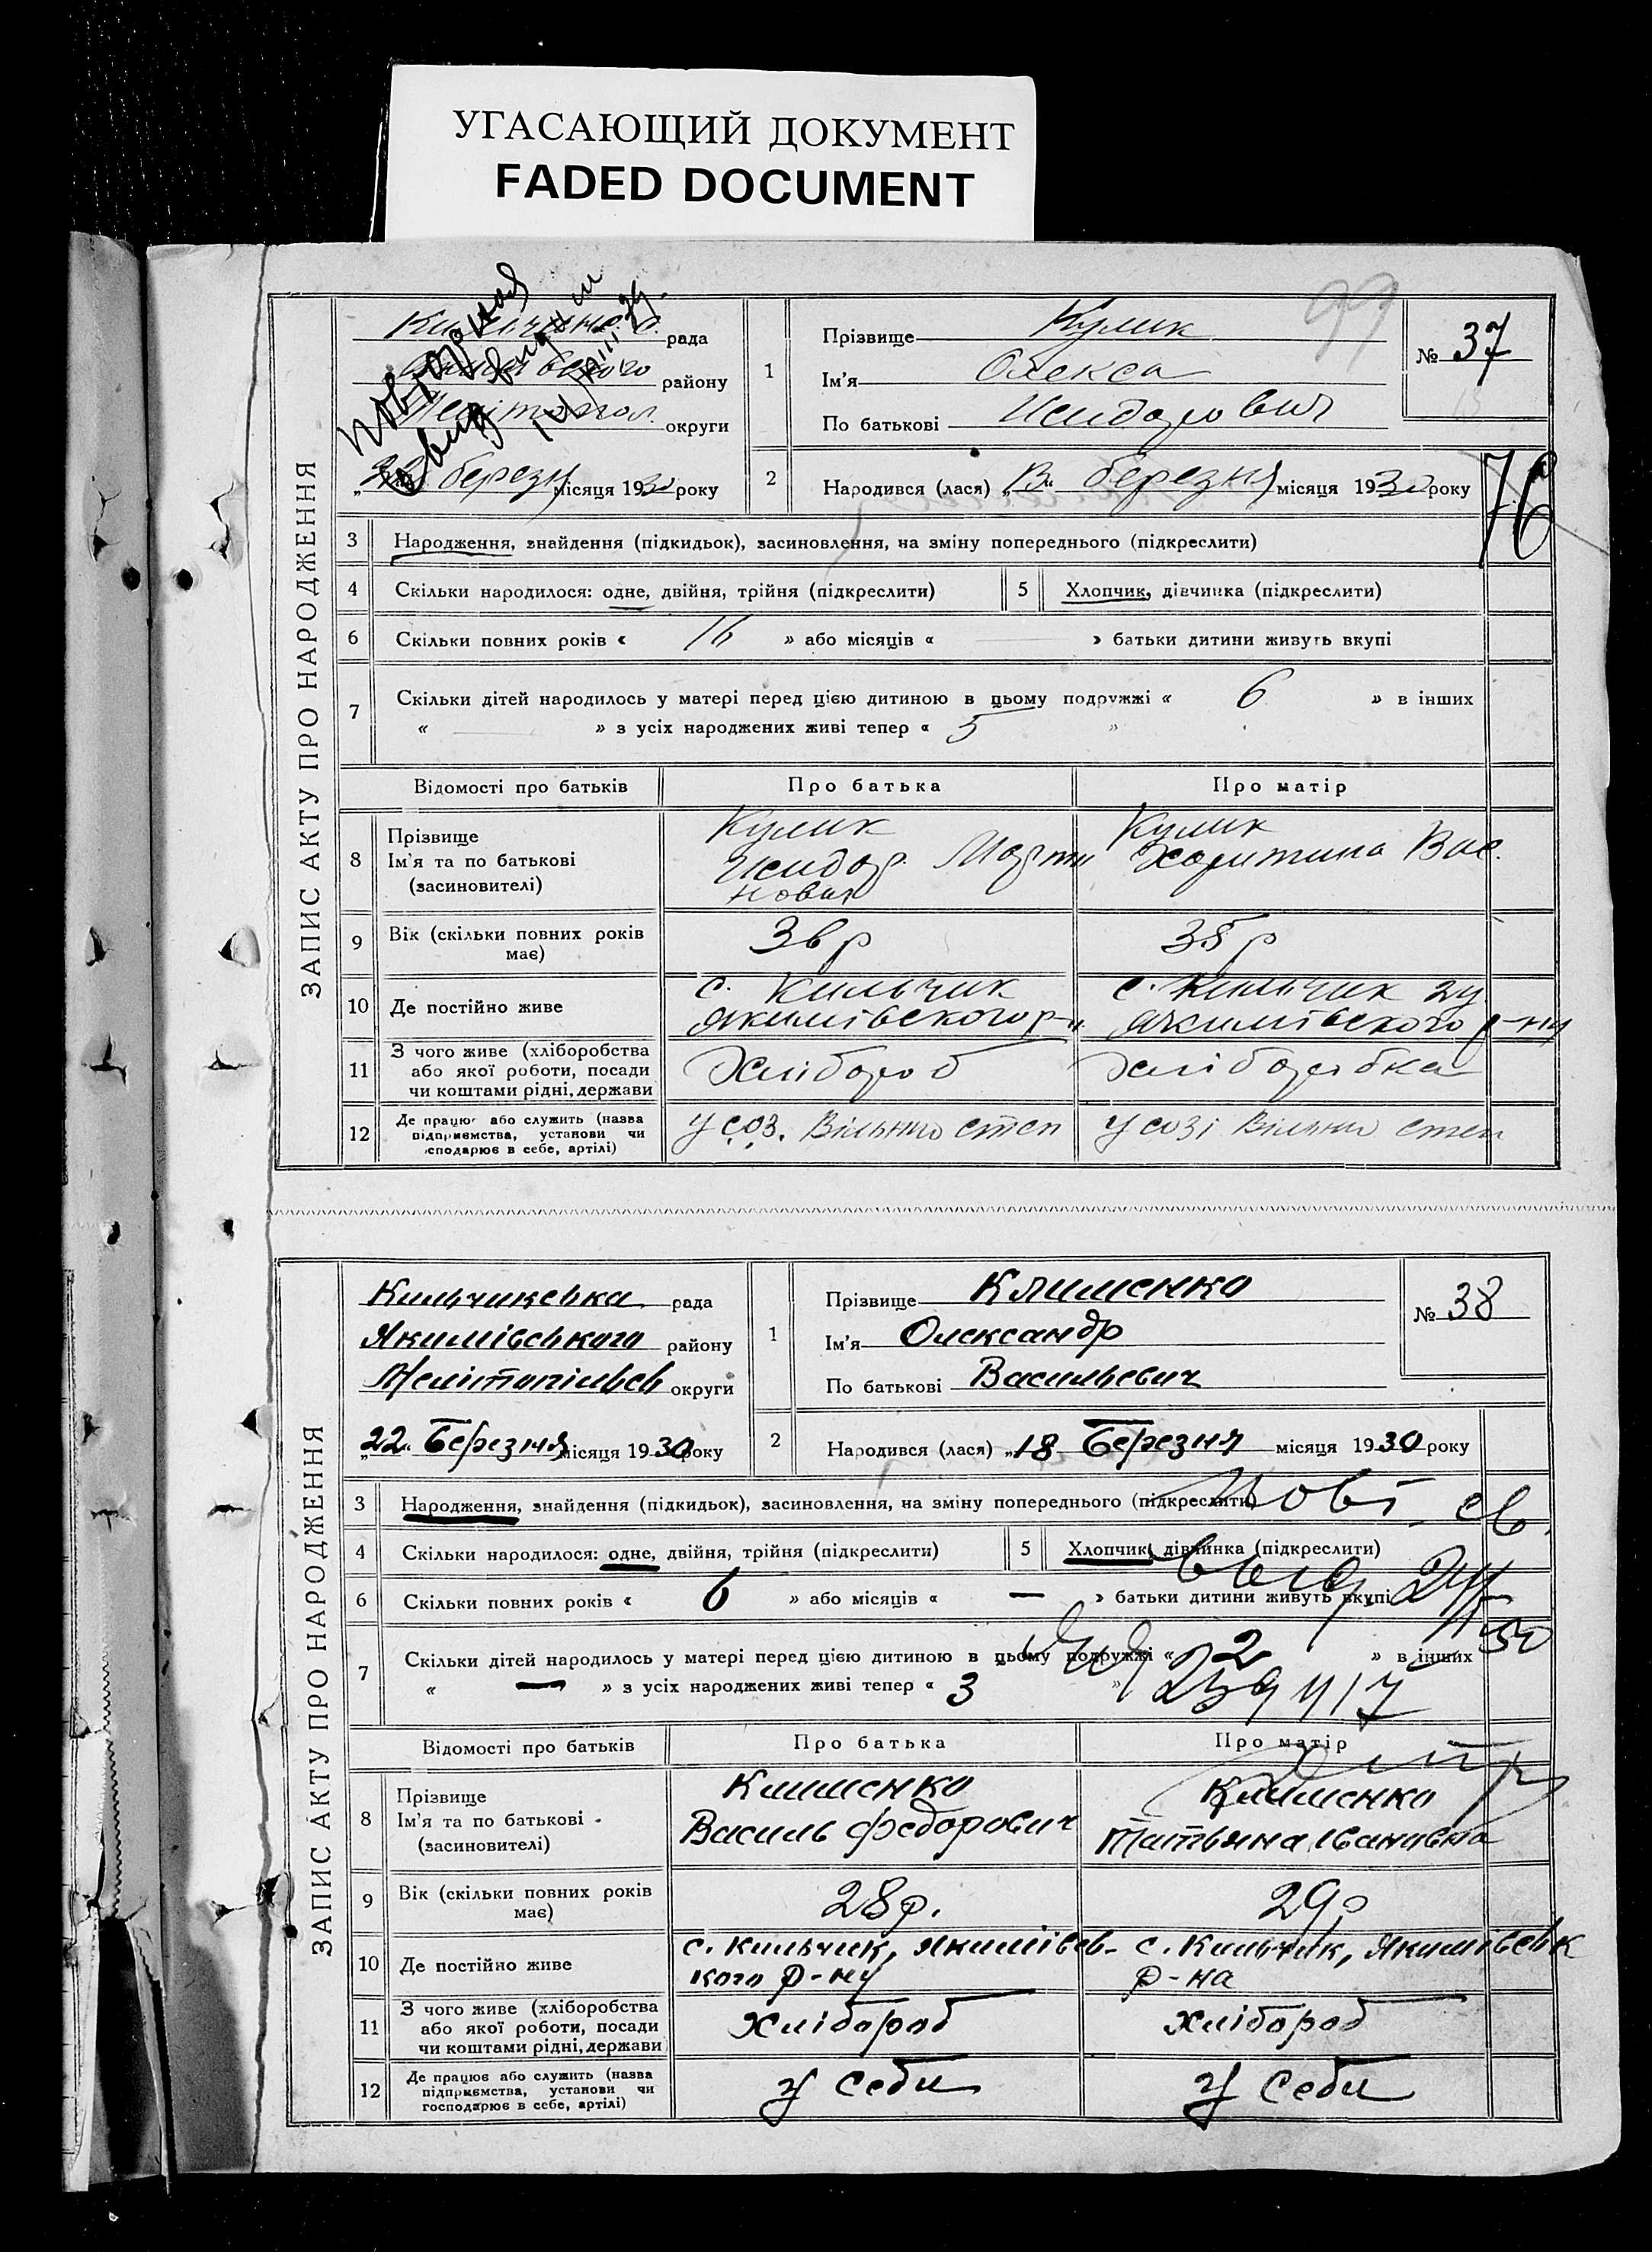 УГАСАЮЩИЙ ДОКУМЕНТ
FADED DOCUMENT
ЗАПИС АКТУ ПРО НАРОДЖЕННЯ
рада
району
округи
березня місяця 1930 року
1
Прізвище Кулик
Ім'я Олекса
По батькові Исидорович
99
№ 37
76
2
Народився (лася) „13“ березня місяця 1930 року
3 Народження, знайдення (підкидьок), засиновлення, на зміну попереднього (підкреслити)
4 Скільки народилося: одне, двійня, трійня (підкреслити)
5 Хлопчик, дівчинка (підкреслити)
6 Скільки повних років « 16 » або місяців « — » батьки дитини живуть вкупі
7 Скільки дітей народилось у матері перед цією дитиною в цьому подружжі « 6 » в інших
« — » з усіх народжених живі тепер « 5 »
Відомості про батьків Про батька Про матір
8 Прізвище
Ім'я та по батькові
(засновителі)
Кулик
Исидор Марти
нович
Кулик
Харитина Вас.
9 Вік (скільки повних років
має)
36 р
35 р
10 Де постійно живе
с. Кильчик
Якимівского р-н
с. Кильчик
Якимівского р-ну
11 З чого живе (хліборобства
або якої роботи, посади
чи коштами рідні, держави
Хлібороб
Хліборобка
12 Де працює або служить (назва
підприємства, установи чи
сподарює в себе, артілі)
у соз. Вільний степ
у созі Вільний степ
ЗАПИС АКТУ ПРО НАРОДЖЕННЯ
Кильчикська рада
Якимівського району
Мелітопільсь округи
„22“ Березня місяця 1930 року
1
Прізвище Клименко
Ім'я Олександр
По батькові Васильевич
№ 38
2
Народився (лася) „18 Березня місяця 1930 року
3 Народження, знайдення (підкидьок), засиновлення, на зміну попереднього (підкреслити)
4 Скільки народилося: одне, двійня, трійня (підкреслити)
5 Хлопчик, дівчинка (підкреслити)
6 Скільки повних років « 6 » або місяців « — » батьки дитини живуть вкупі
7 Скільки дітей народилось у матері перед цією дитиною в цьому подружжі « 2 » в інших
« — » з усіх народжених живі тепер « 3 »
Відомості про батьків Про батька Про матір
8 Прізвище
Ім'я та по батькові
(засиновителі)
Клименко
Василь Федорович
Клименко
Татьяна Івановна
9 Вік (скільки повних років
має)
28 р.
29 р
10 Де постійно живе
с. Кильчик, Якимівсь-
кого р-ну
с. Кильчик, Якимівськ
р-на
11 З чого живе (хліборобства
або якої роботи, посади
чи коштами рідні, держави
хлібороб
хлібороб
12 Де працює або служить (назва
підприємства, установи чи
господарює в себе, артілі)
у себи
у себи